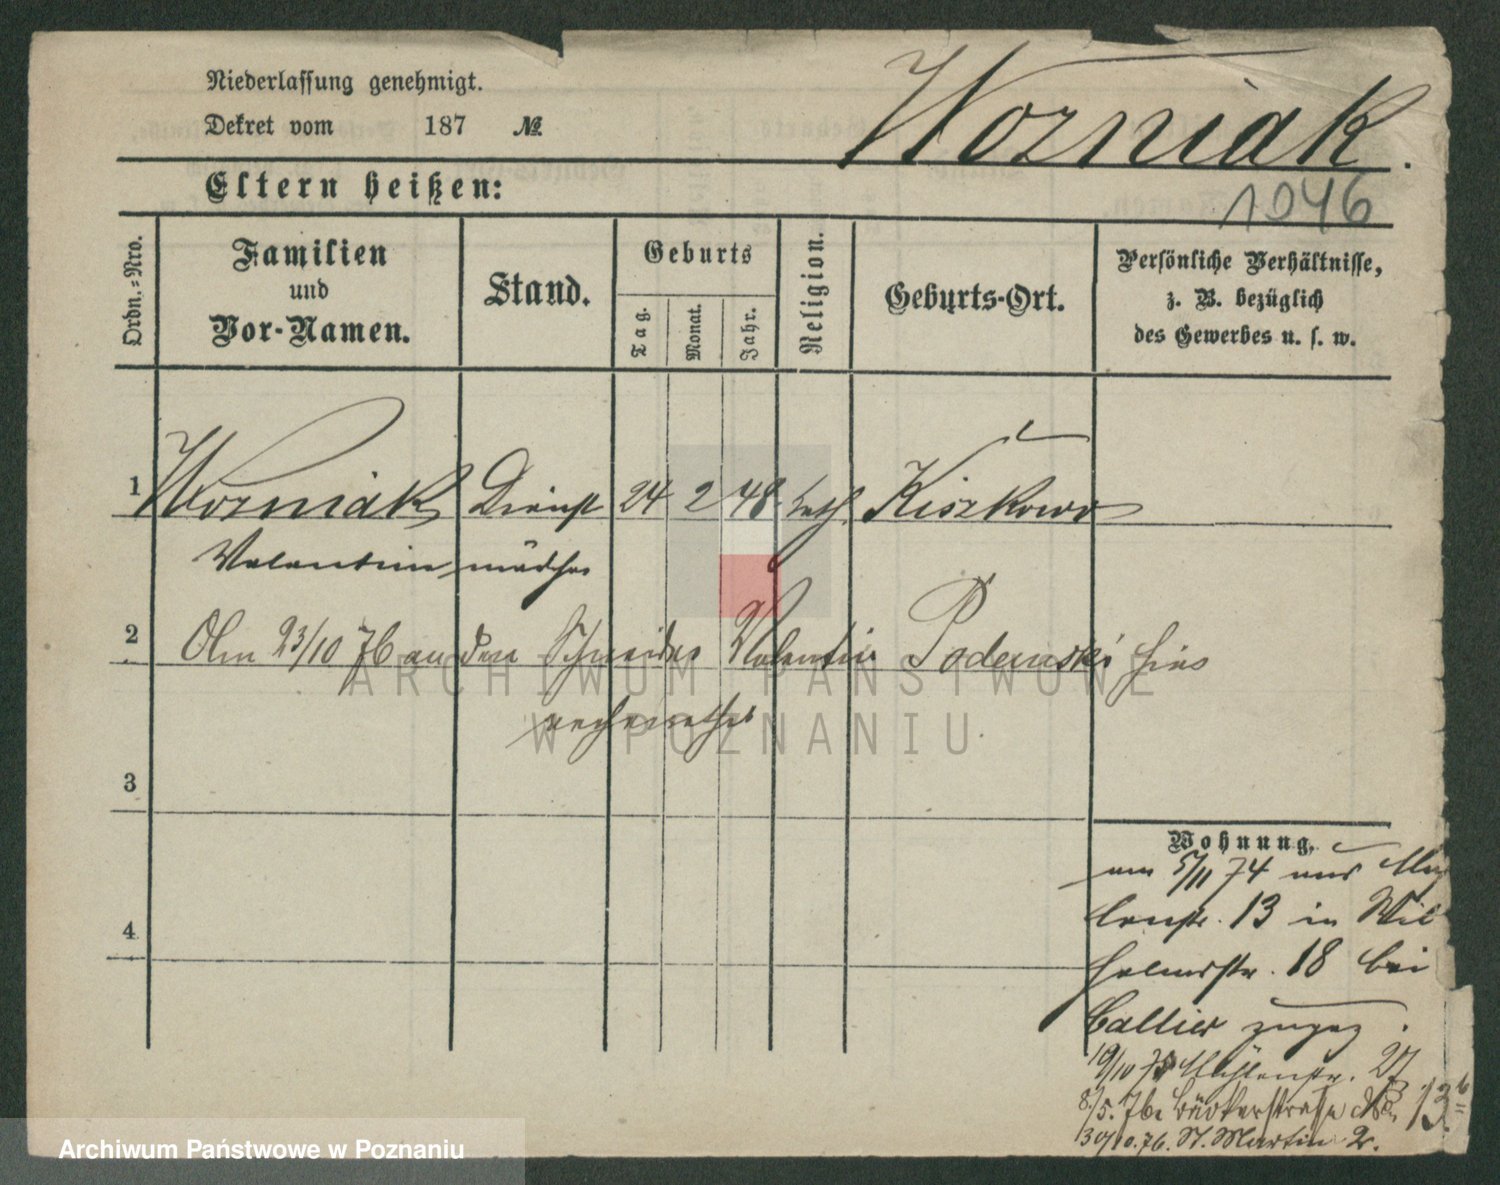 Niederlassung genehmigt.
Dekret vom 187 №
Wozniak.
1046
Eltern heißen:
Ordn.=Nro.
Familien
und
Vor-Namen.
Stand.
Geburts
Tag.
Monat.
Jahr.
Religion.
Geburts-Ort.
Persönliche Verhältnisse,
z. B. bezüglich
des Gewerbes u. s. w.
1 Wozniak Dienst 24 2 48. kath. Kiszkowo
Valentine mädchen
2 Am 23/10 76 an den Schneider Valentin Podemski hier
verheirathet
3
4
Wohnung.
am 5/11 74 aus
13 in Wil
helmstr. 18 bei
Callier zugez.
19/10 75 Mühlenstr. 27
8/5. 76. Bäckerstraße No. 13b
30/10. 76. St. Martin 2.
ARCHIWUM PAŃSTWOWE
W POZNANIU
Archiwum Państwowe w Poznaniu